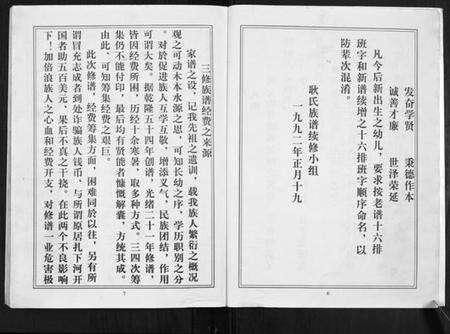 发奋学贤　秉德作本
诚善才廉　世泽荣延
凡今后新出生之幼儿，要求按老谱十六排
班字和新谱续增之十六排班字顺序命名，以
防辈次混淆。
耿氏族谱续修小组
一九九二年正月十九
6
三修族谱经费之来源
家谱之设，记我先祖之遗训，载我族人繁衍之概况
观之可动木本水源之思，可知长幼之序，学历职别之分
。对於促进族人互学互敬，增添义气，民族团结，作用
可谓大矣。据乾隆五十四年创谱，光绪二十一年修谱，
皆因经费所困，历经十余寒暑，取多种方式。三四次筹
集仍不能付印，最后均有贤能者慷慨解囊，方统其成。
由此，可知筹集经费之艰巨。
此次修谱，经费筹集方面，困难同於以往，另有所
谓冒充志成者到处诈骗族人钱币，与所谓原居扎下河开
国者助五百美元，果后不真之干挠。在此两个不良影响
下！加倍浪族人之心血和经费开支，对修谱一业危害极
7